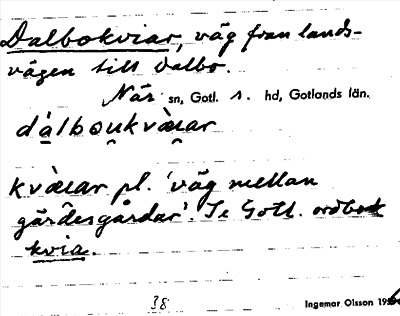 Dalbokviar, väg från lands-
vägen till Dalbo.
När sn, Gotl. S. hd, Gotlands län.
dálboukvàrar
kvàrar pl. 'väg mellan
gärdesgårdar'. Se Gotl. ordbok
kvia.
38
Ingemar Olsson 19